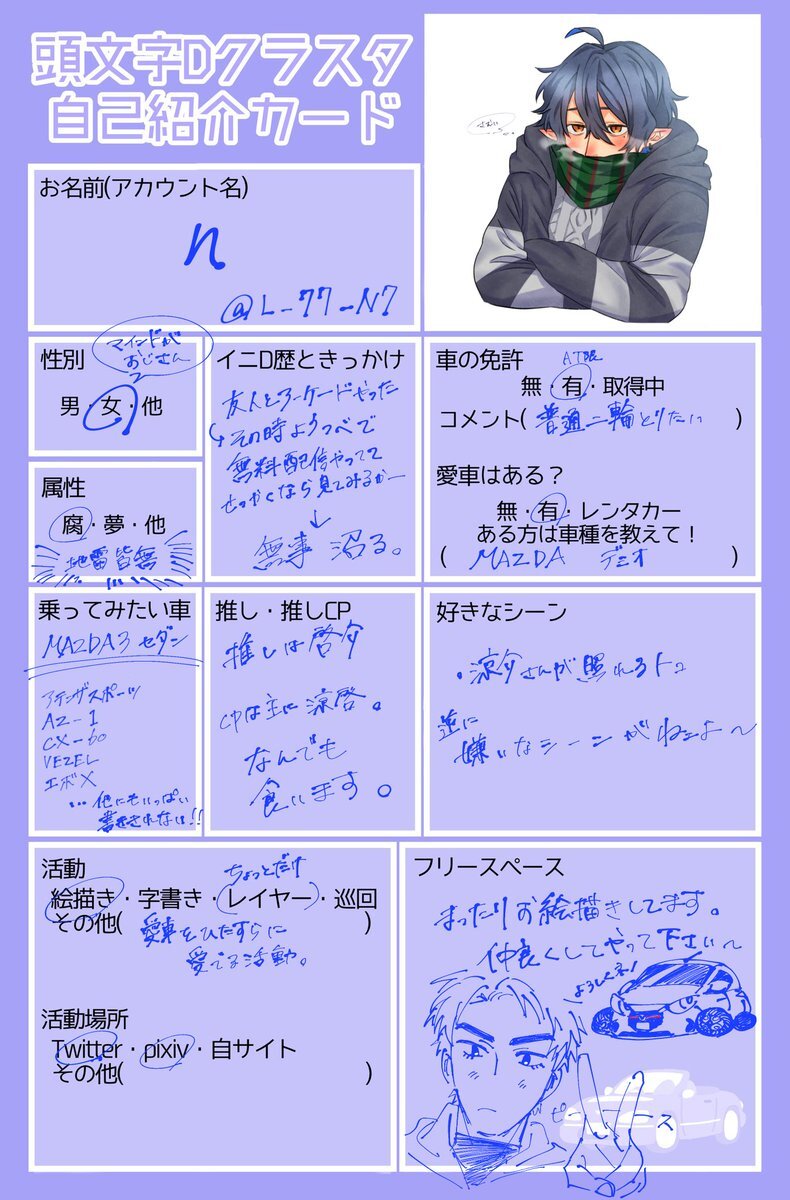 頭文字Dクラスタ
自己紹介カード
さむい
お名前(アカウント名)
n
@L_77_N7
性別
マインドが
おじさん
男・女・他
イニD歴ときっかけ
友人とアーケードやった
その時ようつべで
無料配信やってて
せっかくなら見てみるかー
↓
無事 沼る。
車の免許
AT限
無・有・取得中
コメント(普通二輪とりたい)
愛車はある?
無・有・レンタカー
ある方は車種を教えて!
(MAZDA デミオ)
属性
腐・夢・他
地雷皆無
乗ってみたい車
MAZDA3 セダン
アテンザスポーツ
AZ-1
CX-60
VEZEL
エボX
...他にもいっぱい
書ききれない!!
推し・推しCP
推しは啓介
CPは主に涼啓。
なんでも
食います。
好きなシーン
・涼介さんが照れるトコ
逆に
嫌いなシーンがねェよ〜
活動
ちょっとだけ
絵描き・字書き・レイヤー・巡回
その他(愛車をひたすらに)
愛でる活動。
活動場所
Twitter・pixiv・自サイト
その他( )
フリースペース
まったりお絵描きしてます。
仲良くしてやって下さい〜
よろしくネ!
ピース